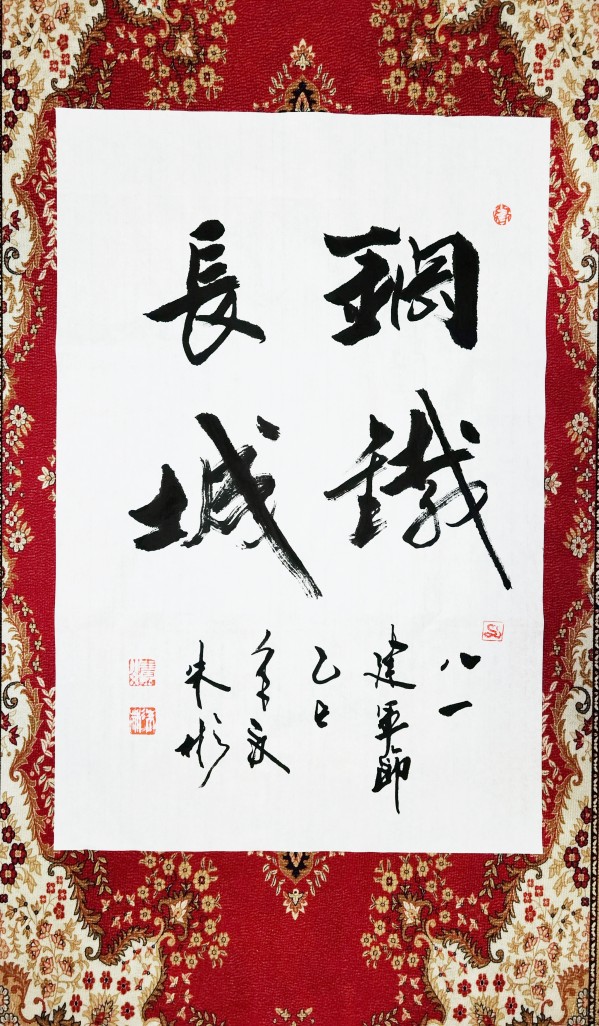 鋼鐵
長城
八一
建軍節
乙巳
年敬
朱彬